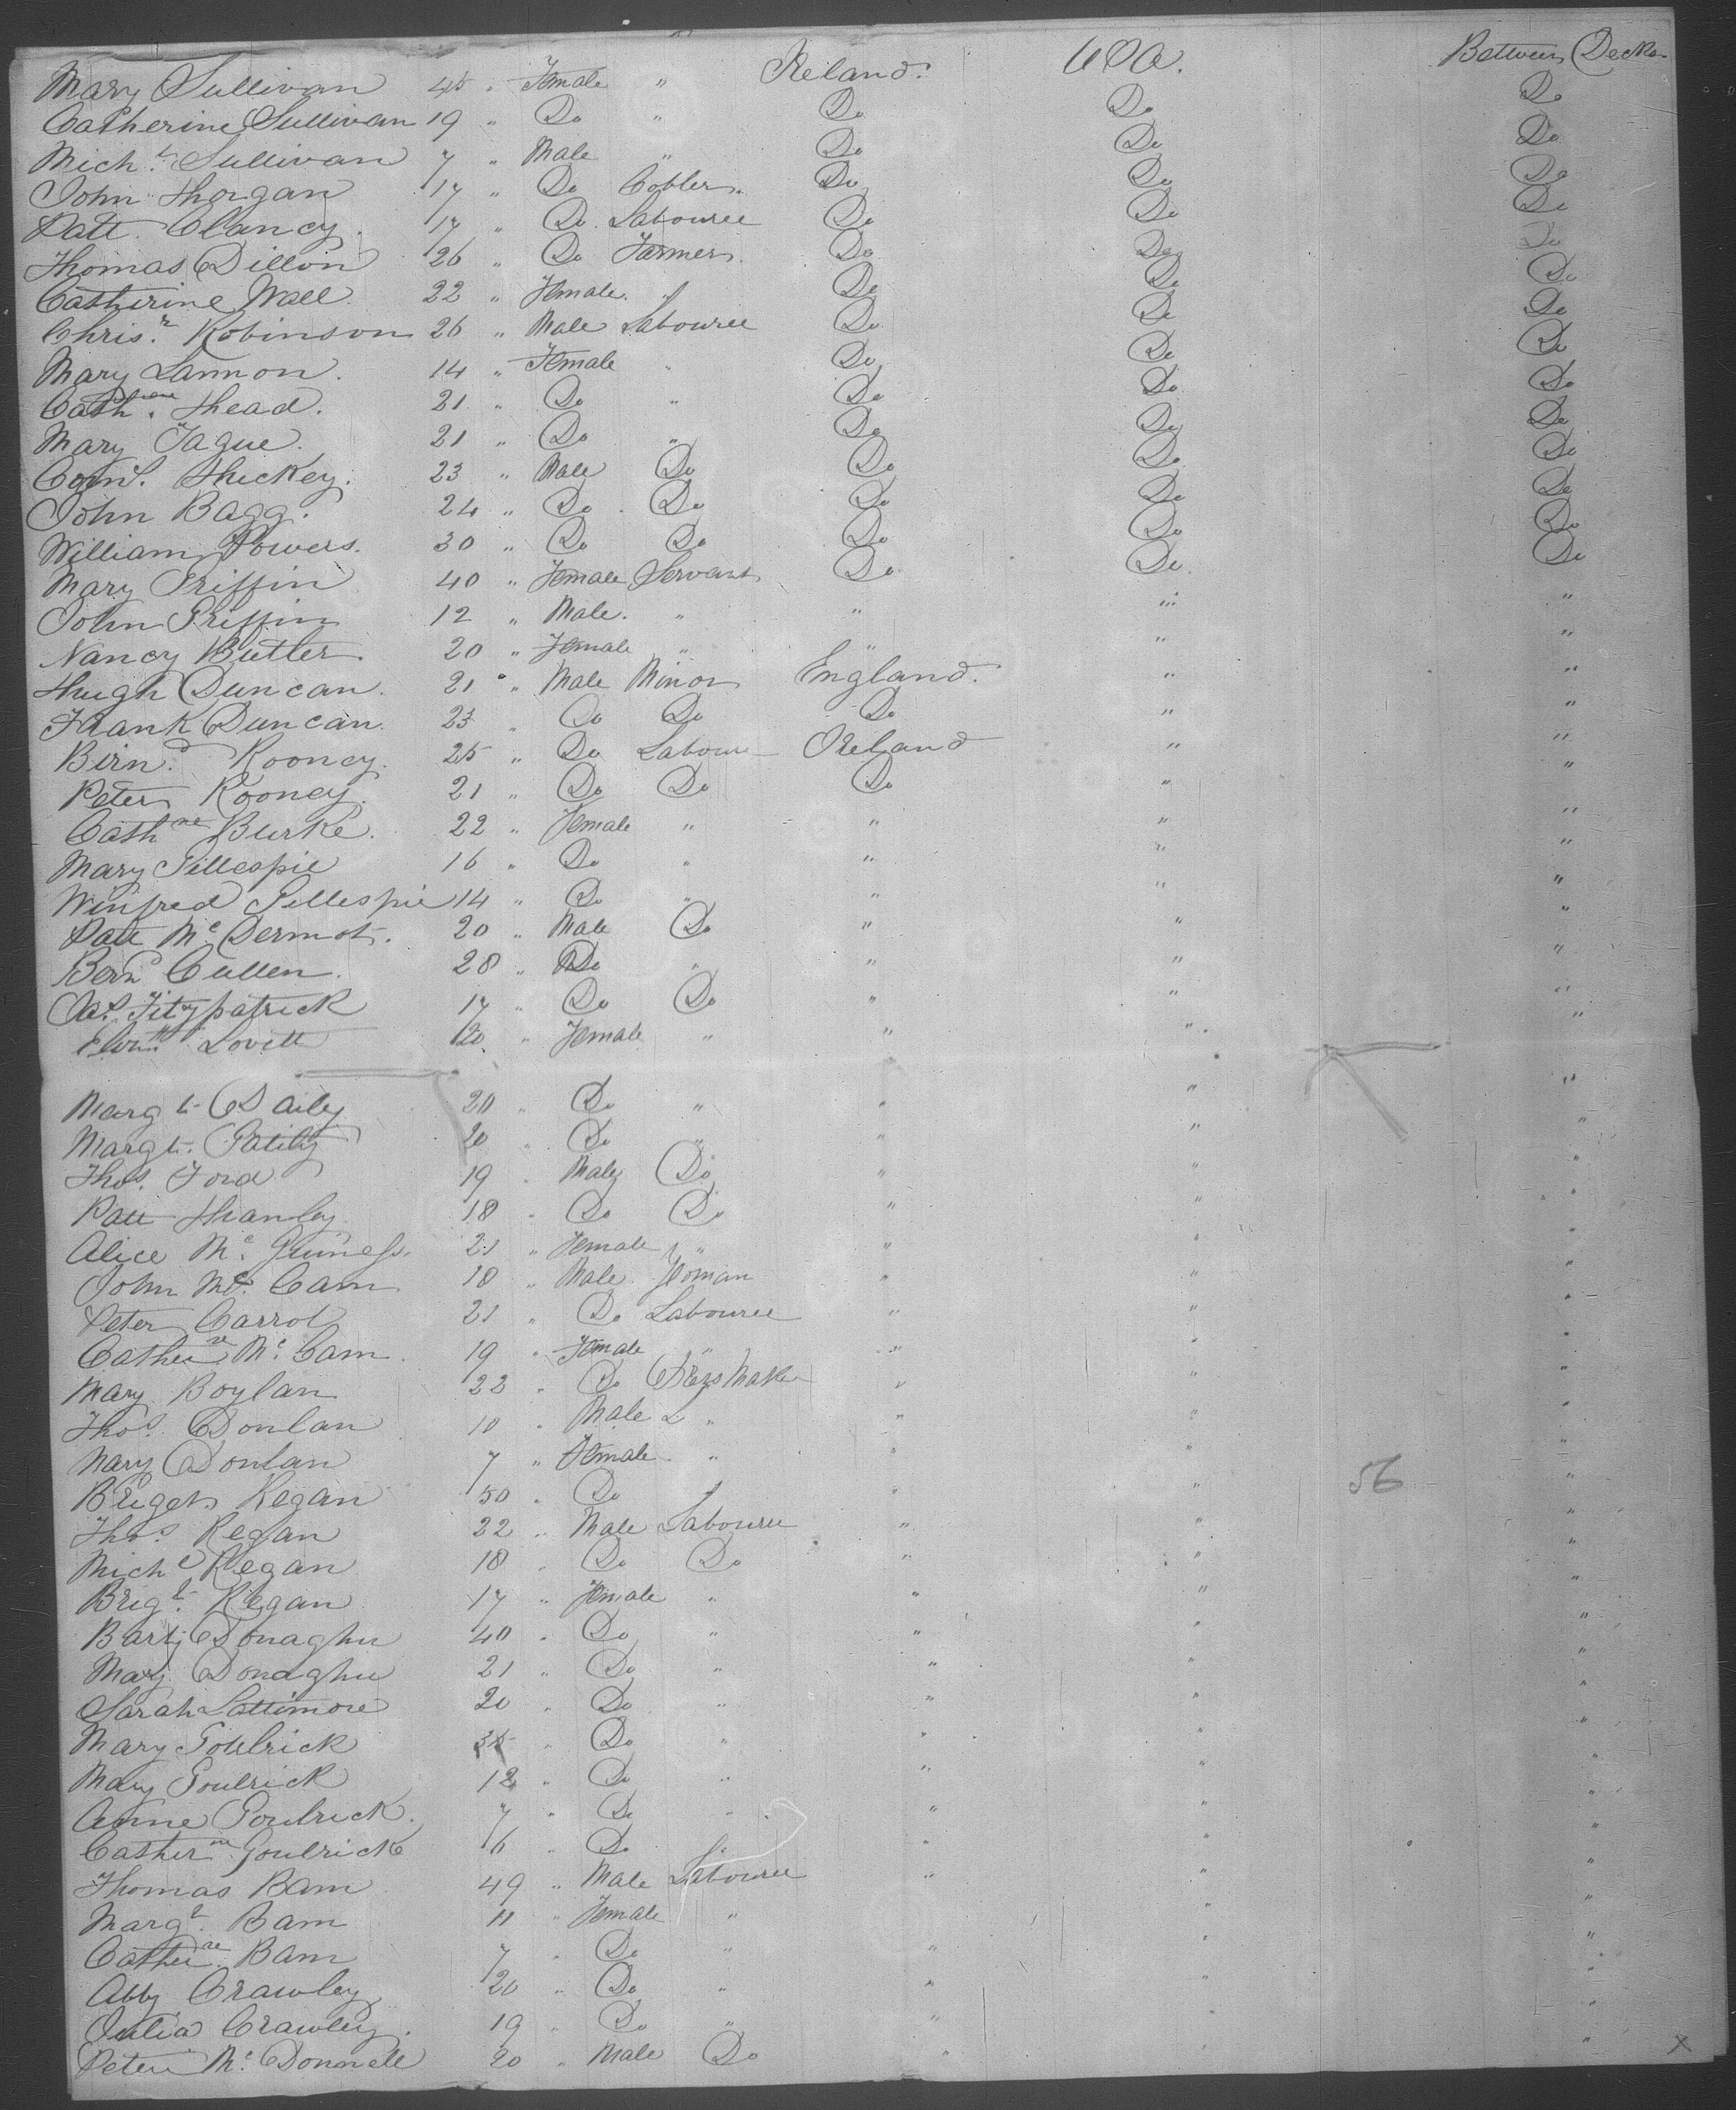 Mary Sullivan 45 " Female " Ireland. USA. Between Decks
Catherine Sullivan 19 " Do " Do Do Do
Mich.l Sullivan 7 " Male " Do Do Do
John Horgan 17 " Do Cobler. Do Do Do
Patt. Clancy. 17 " Do. Labourer Do Do Do
Thomas Dillon 26 " Do Farmer. Do Do Do
Catherine Wall. 22 " Female. " Do Do Do
Chris.r Robinson 26 " Male Labourer Do Do Do
Mary Lannon. 14 " Female " Do Do Do
Cath.ne Head. 21 " Do " Do Do Do
Mary Tague. 21 " Do " Do Do Do
Corn.s Hickey. 23 " Male Do Do Do Do
John Bagg. 24 " Do. Do Do Do Do
William Powers. 30 " Do Do Do Do Do
Mary Griffin 40 " Female Servant Do. Do. Do
John Griffin 12 " Male. " " " "
Nancy Butler. 20 " Female " " " "
Hugh Duncan. 21 " Male Minor England. " "
Frank Duncan. 23 " Do Do Do " "
Birn.d Rooney. 25 " Do Labourer Ireland " "
Peter Rooney. 21 " Do Do Do " "
Cath.ne Burke. 22 " Female " " " "
Mary Gillespie 16 " Do " " " "
Winfred Gillespie 14 " Do " " " "
Patt Mc Dermot. 20 " Male Do " " "
Bern.d Cullen. 28 " Do " " " "
Jas. Fitzpatrick 17 " Do Do " " "
Lovett 20. " Female " " " "
Margt. Daily 20 " Do " " " "
Margt. 20 " Do " " " "
Thos. Ford 19 " Male Do " " "
Patt Hanley 18 " Do Do " " "
Alice Mc. Guiness. 21 " Female " " " "
John Mc. Cam 18 " Male. " " "
Peter Carrol 21 " Do Labourer " " "
Catherine Mc. Cam. 19 " Female " " " "
Mary Boylan 22 " Do Dress Maker " " "
Thos. Donlan 10 " Male " " " "
Mary Donlan 7 " Female " " " "
Briget Regan 50 " Do " " " 56 "
Thos. Regan 22 " Male Labourer " " "
Mich.l Regan 18 " Do Do " " "
Brig.t Regan 17 " Female " " " "
Barty Donaghu 40 " Do " " " "
Mary Donaghu 21 " Do " " " "
Sarah Lattimore 20 " Do " " " "
Mary Goulrick " Do " " " "
Mary Goulrick 12 " Do " " " "
Anne Goulrick. 7 " Do " " " "
Catherine Goulrick 6 " Do " " " "
Thomas Bam 49 " Male Labourer " " "
Marg.t Bam 11 " Female " " "
Catherine Bam 7 " Do " " " "
Abby Crawley 20 " Do " " " "
Julia Crawley. 19 " Do " " " "
Peter Mc. Donnell 20 " Male Do " " " X